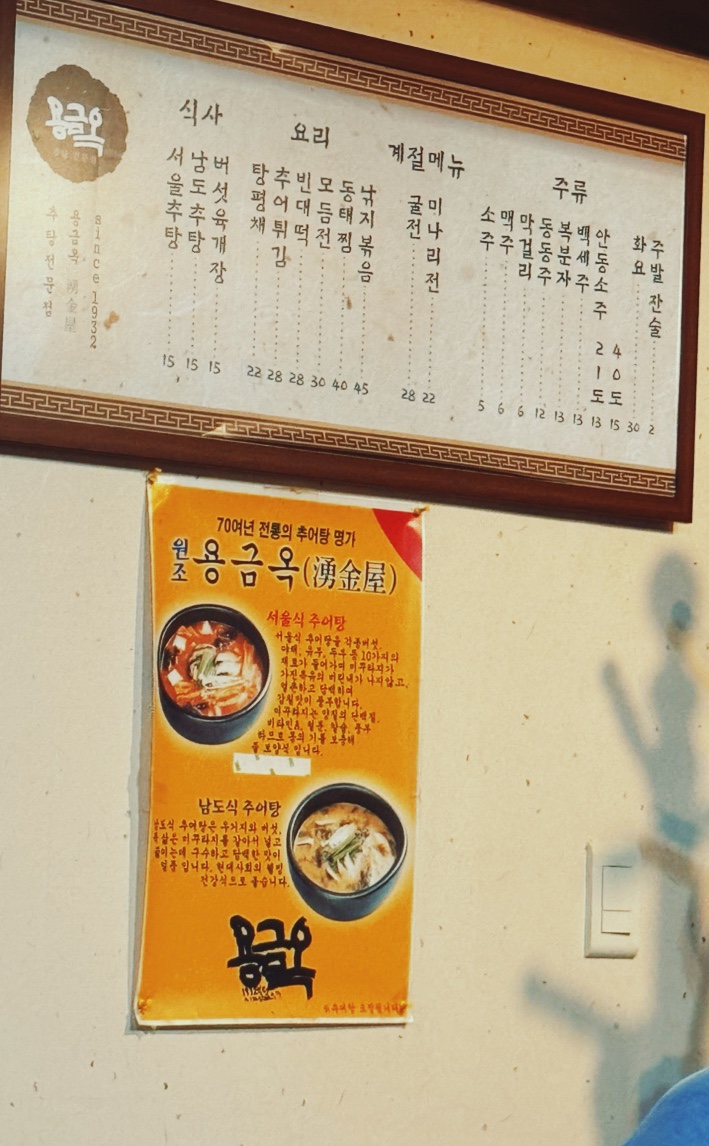 용금옥
since 1932
용금옥 湧金屋
추탕 전문점
식사
서울추탕 15
남도추탕 15
버섯육개장 15
요리
탕평채 22
추어튀김 28
빈대떡 28
모듬전 30
동태찜 40
낚지볶음 45
계절메뉴
굴전 28
미나리전 22
주류
소주 5
맥주 6
막걸리 6
동동주 12
복분자 13
백세주 13
안동소주 21도 13
40도 15
화요 30
주발 잔술 2
70여년 전통의 추어탕 명가
원조 용금옥(湧金屋)
서울식 추어탕
서울식 추어탕은 각종버섯,
야채, 유부, 두부 등 10가지의
재료가 들어가며 미꾸라지가
가진특유의 비린내가 나지않고,
얼큰하고 담백하며
감칠맛이 풍부합니다.
미꾸라지는 양질의 단백질,
비타민A, 철분, 칼슘, 풍부
하므로 몸의 기를 보충해
줄 보양식 입니다.
남도식 추어탕
남도식 추어탕은 우거지와 버섯,
삶은 미꾸라지를 갈아서 넣고
끓이는데 구수하고 담백한 맛이
일품 입니다. 현대사회의 웰빙
건강식으로 좋습니다.
용금옥